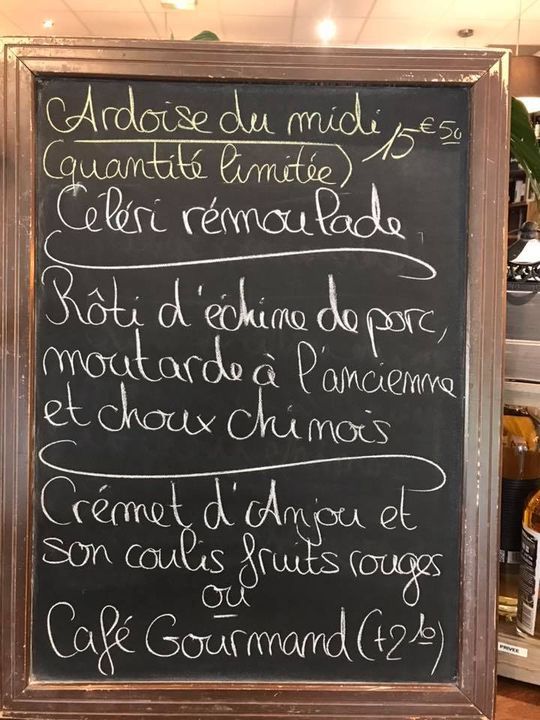 Ardoise du midi 15€50
(quantité limitée)
Céléri rémoulade
Rôti d'échine de porc,
moutarde à l'ancienne
et choux chinois
Crémet d'Anjou et
son coulis fruits rouges
ou
Café Gourmand (+2 10)
PRIVEE